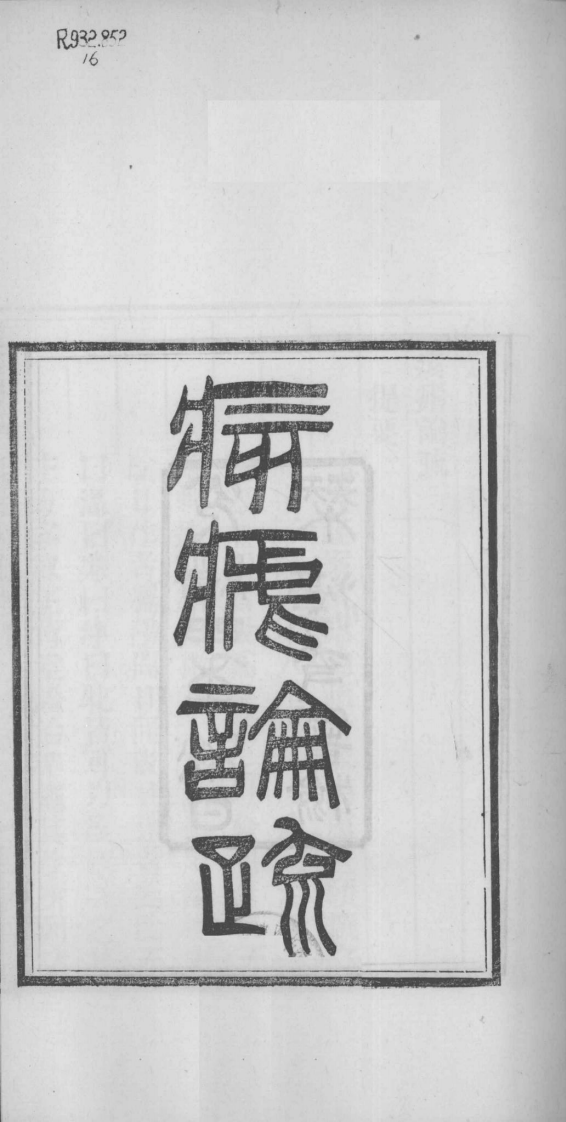 R932.852
16
痎瘧論疏